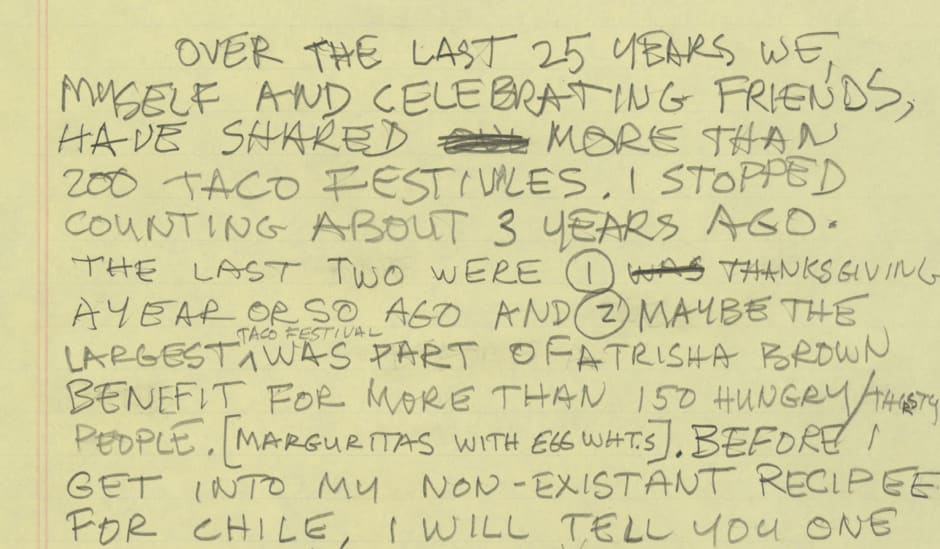 OVER THE LAST 25 YEARS WE,
MYSELF AND CELEBRATING FRIENDS,
HAVE SHARED MORE THAN
200 TACO FESTIVLES. I STOPPED
COUNTING ABOUT 3 YEARS AGO.
THE LAST TWO WERE ① WAS THANKSGIVING
A YEAR OR SO AGO AND ② MAYBE THE
TACO FESTIVAL
LARGEST ^ WAS PART OF A TRISHA BROWN
BENEFIT FOR MORE THAN 150 HUNGRY/THIRSTY
PEOPLE. [MARGURITAS WITH EGG WHT.S]. BEFORE I
GET INTO MY NON-EXISTANT RECIPEE
FOR CHILE, I WILL TELL YOU ONE